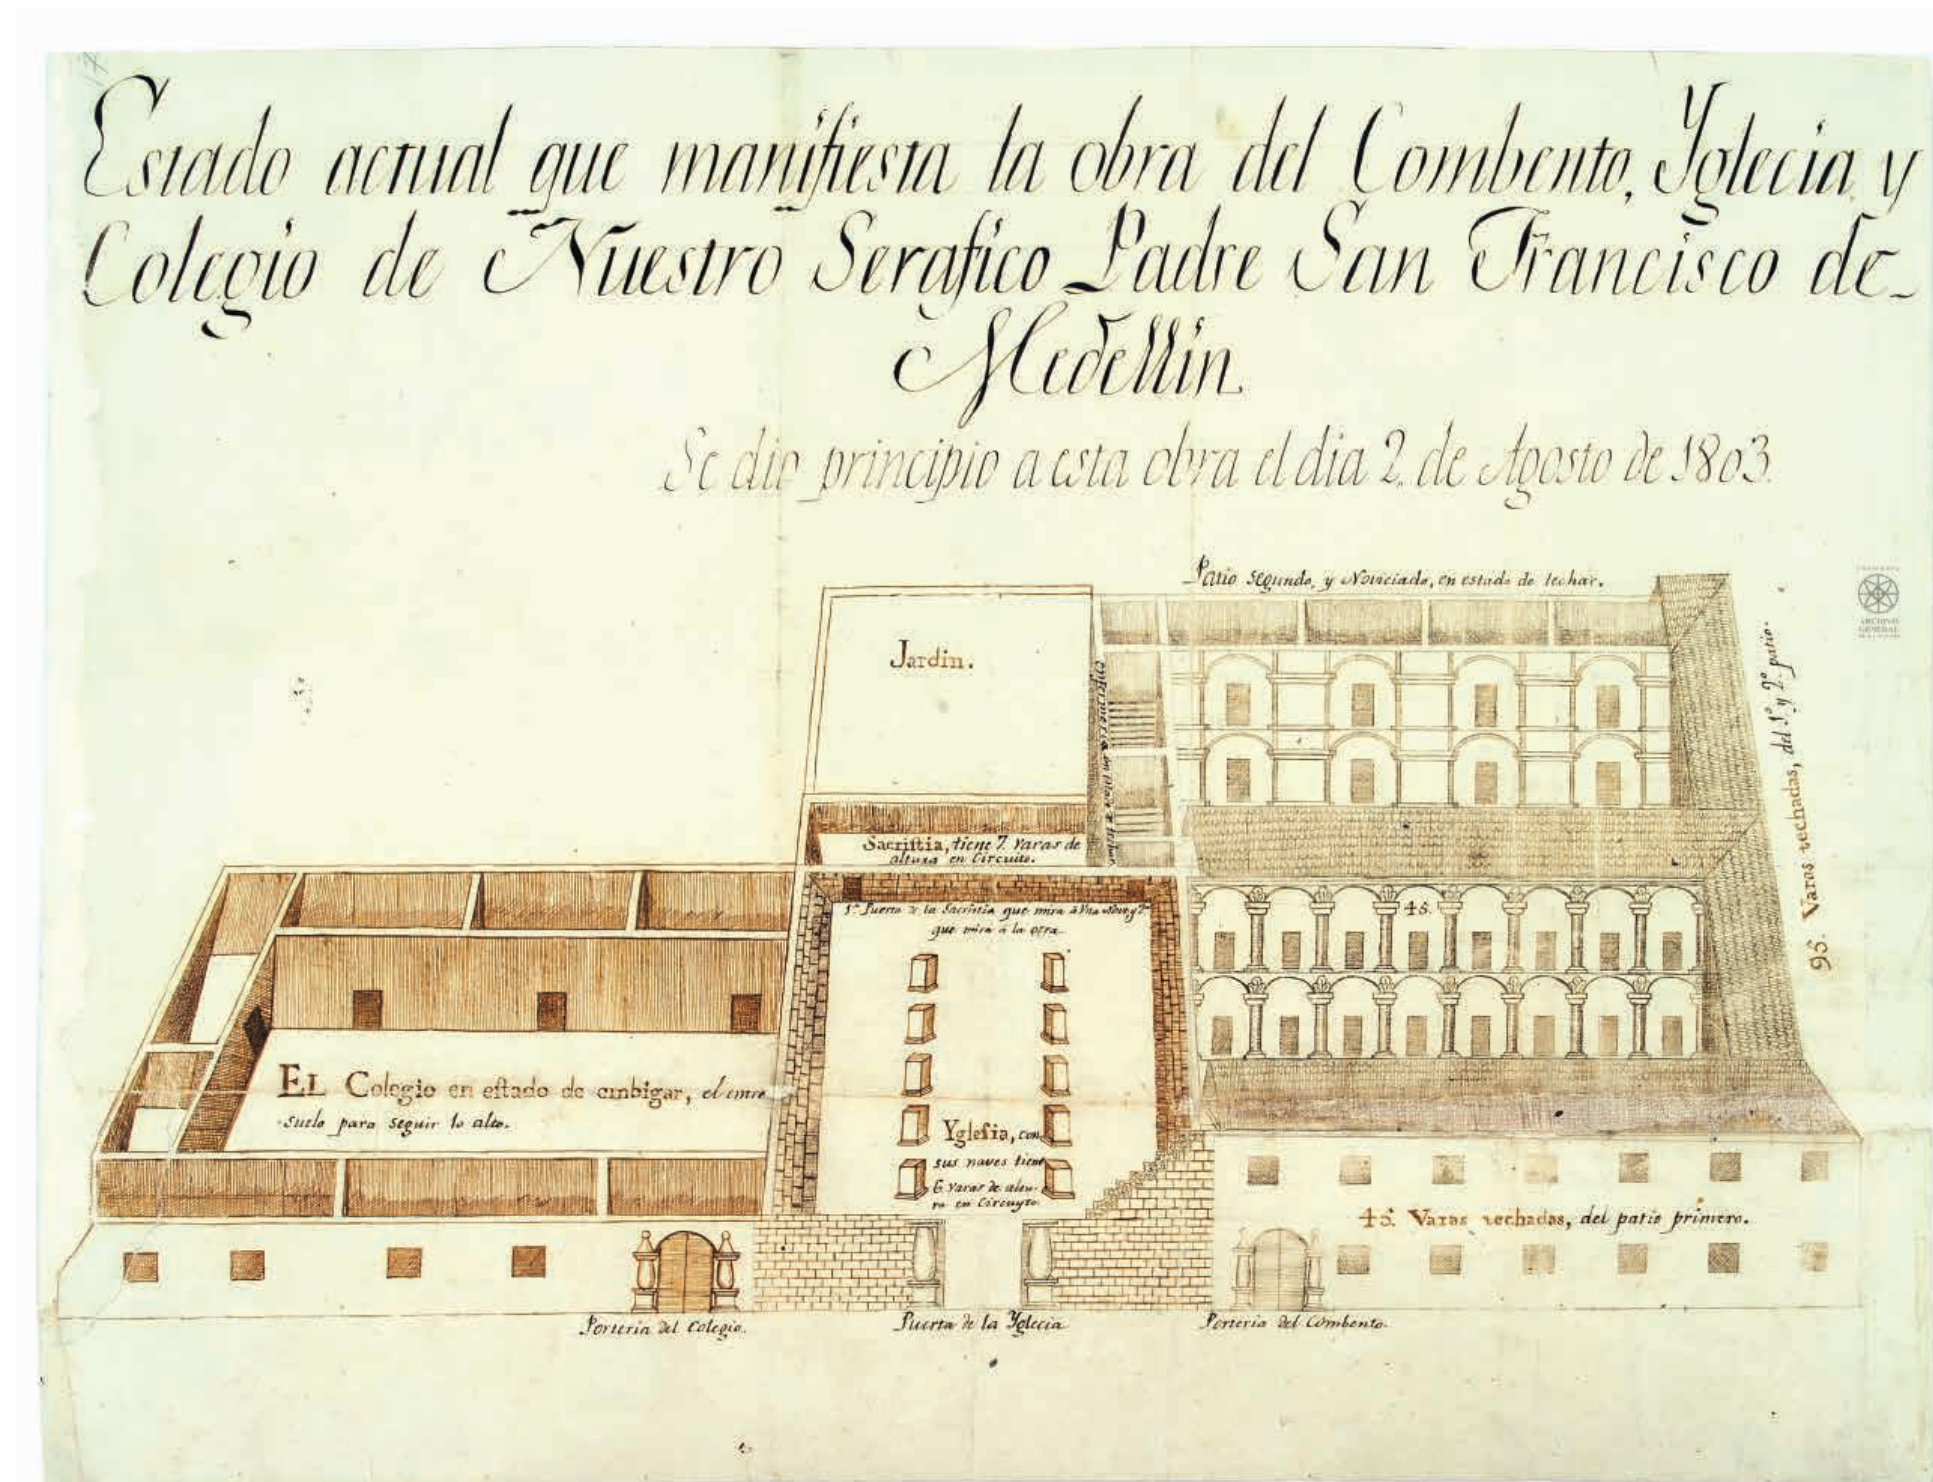 Estado actual que manifiesta la obra del Combento, Yglecia, y
Colegio de Nuestro Serafico Padre San Francisco de
Medellin.
Se dio principio a esta obra el dia 2. de Agosto de 1803.
Patio segundo, y Noviciado, en estado de techar.
ARCHIVO
GENERAL
Jardin.
95. Varas techadas, del 1º y 2º patio.
Sacristia, tiene 7 varas de
altura en Circuito.
1ª Puerta de la Sacristia que mira á Una Nave, y 2ª
que mira á la otra
45.
EL Colegio en estado de embigar, el entre
suelo para seguir lo alto.
Yglesia, con
sus naves tiene
6 varas de altu-
ra en Circuyto.
45. Varas techadas, del patio primero.
Porteria del Colegio.
Puerta de la Yglecia
Porteria del Combento.